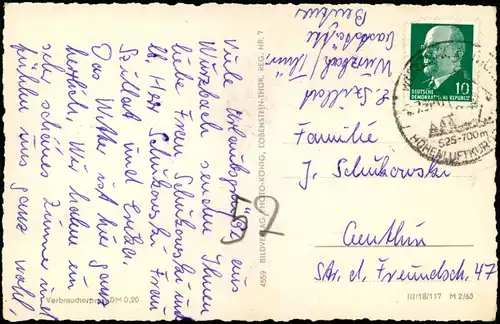 Viele Urlaubsgrüße aus
Wurzbach senden Ihnen
liebe Frau Schukowski und
lb. Herr Schukowski Frau
Szillat und Enkel.
Das Wetter ist hier ganz
herrlich. Wir haben ein
sehr schönes Zimmer und
fühlen uns ganz wohl.
Verbraucherpreis DM 0,20
4559 BILDVERLAG PHOTO-KÖNIG, LOBENSTEIN-THÜR. REG. NR. 7
57
E. Szillat
Wurzbach / Thür.
Gaststätte
DEUTSCHE
DEMOKRATISCHE REPUBLIK
10
525-700m
HÖHENLUFTKUR
Familie
J. Schukowski
Genthin
Str. d. Freundsch. 47
III/18/117 M 2/63